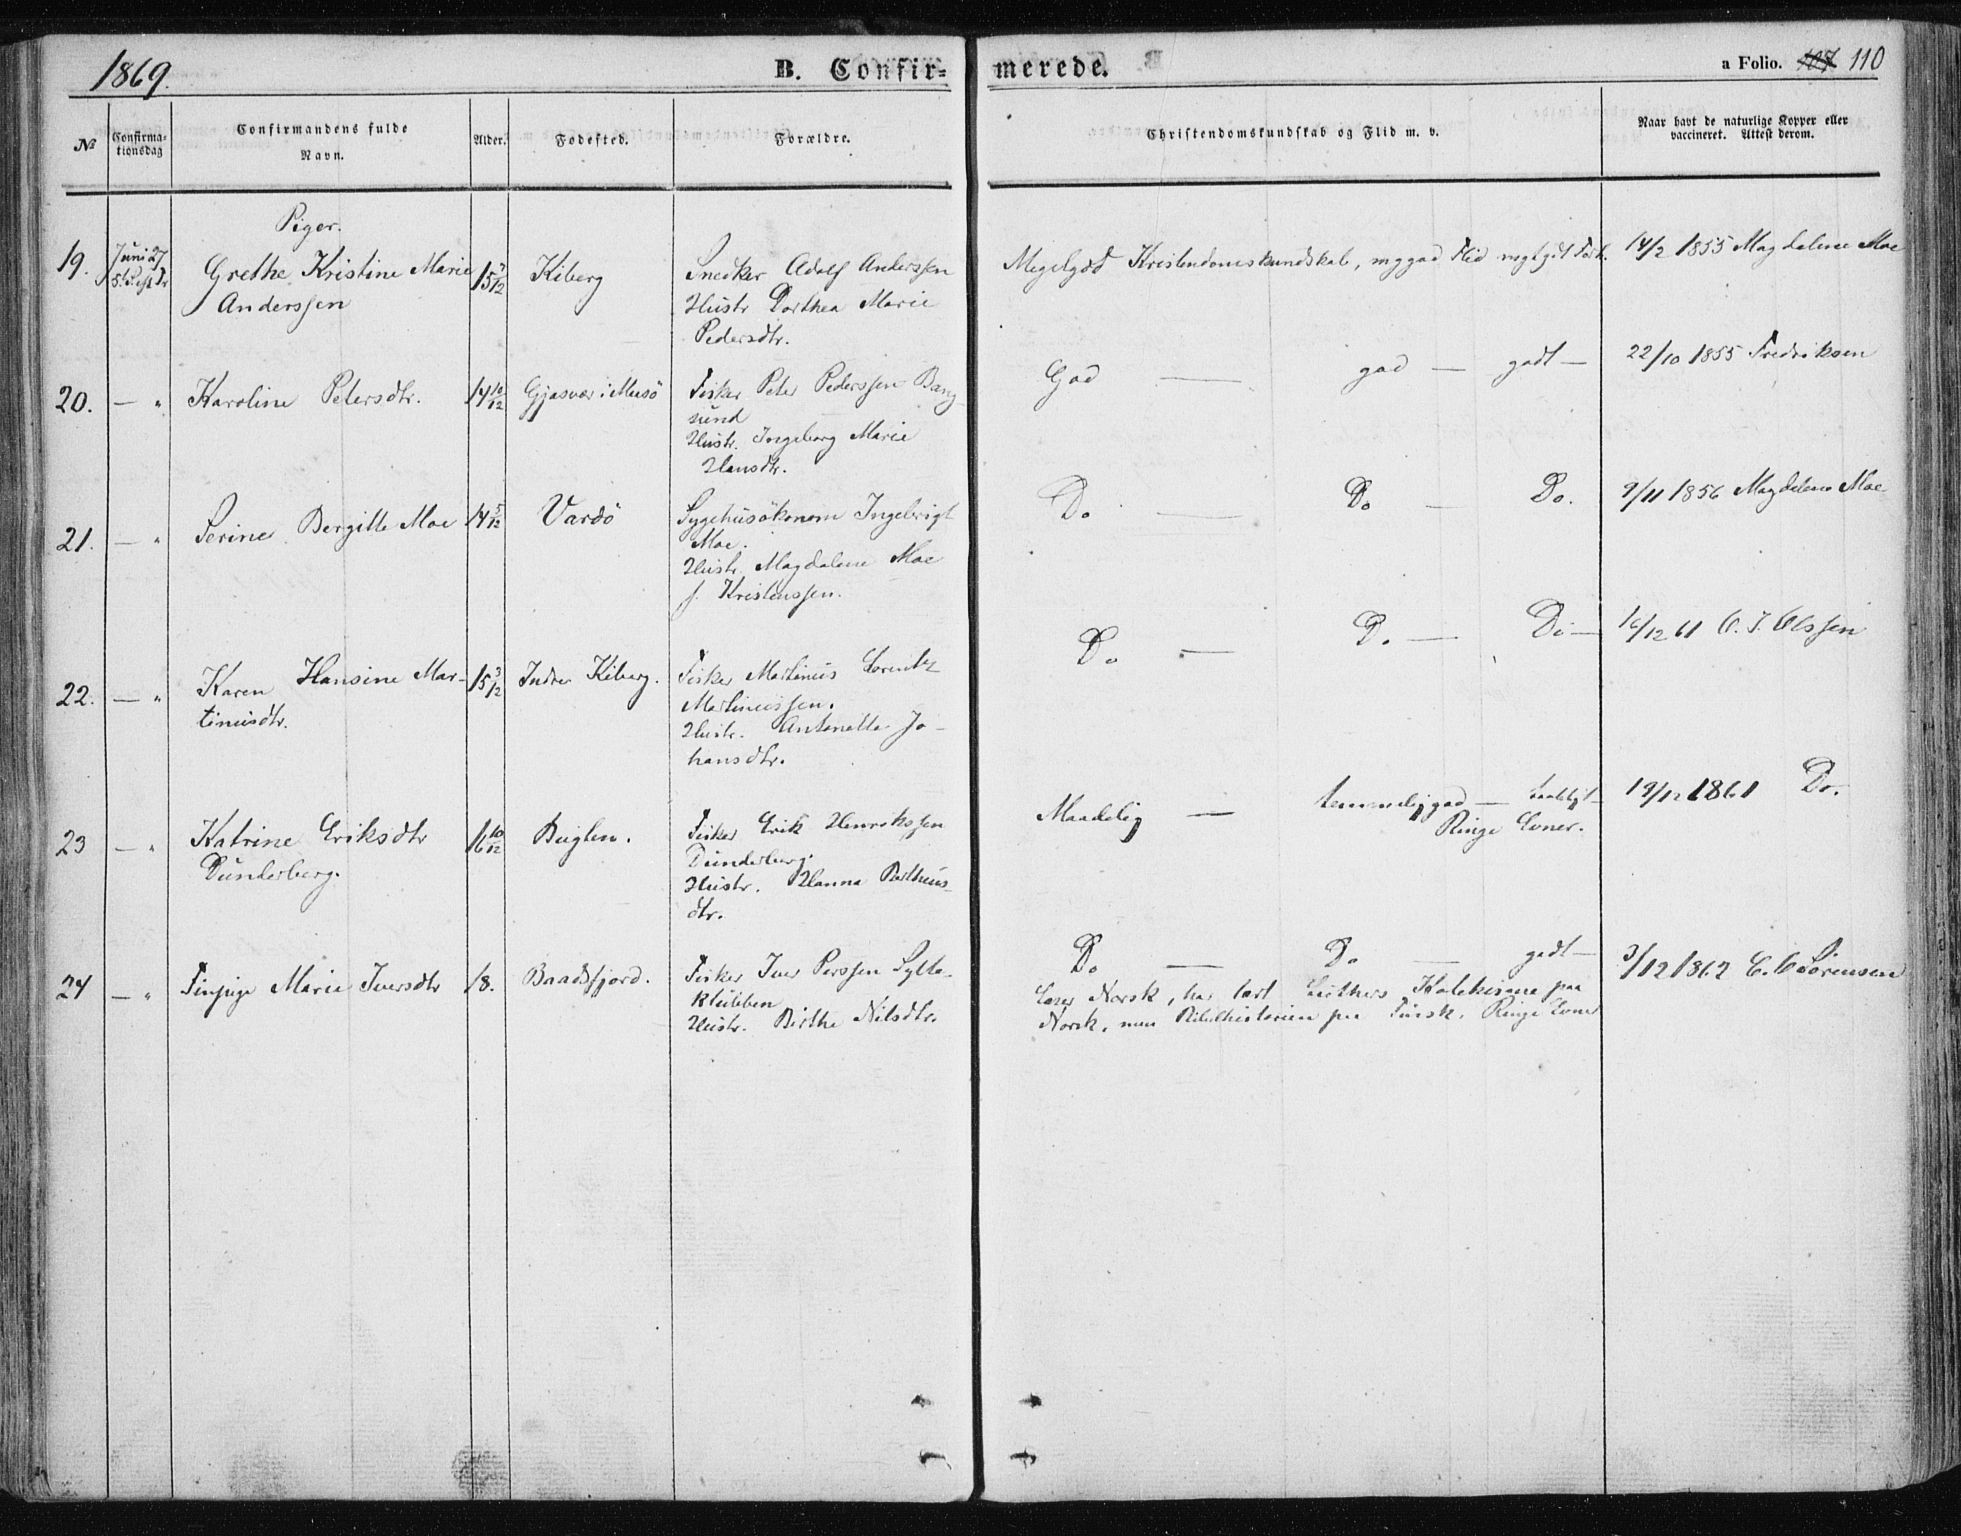 1869.
B. Confir-
merede.
a Folio. 107 110
№
Confirma-
tionsdag
Confirmandens fulde
Navn.
Alder.
Fødested.
Forældre.
Christendomskundskab og Flid m. v.
Naar havt de naturlige Kopper eller
vaccineret. Attest derom.
Piger.
19.
Juni 27
Grethe Kristine Marie
Anderssen
15
Kiberg
Snedker Adolf Anderssen
Hustr Dorthea Marie
Pedersdtr.
Megetgod Kristendomskundskab, mggod Flid mgtgdt Forh.
14/2 1855 Magdalene Moe
20. — "
Karoline Petersdtr.
14 10/12
Gjæsvær i Maasö
Fisker Peter Pederssen Bang-
sund
Hustr. Ingeborg Marie
Hansdtr.
God — god — godt —
22/10 1855 Fredriksen
21. — "
Serine Bergitte Moe
14 5/12
Vardö
Sygehusökonom Ingebrigt
Moe.
Hustr. Magdalene Moe
f. Kristenssen.
Do — Do — Do.
9/11 1856 Magdalene Moe
22. — "
Karen Hansine Mar-
tinusdtr.
15 3/12
Indre Kiberg.
Fisker Martinus Lorentz
Martinussen.
Hustr. Antonette Jo-
hansdtr.
Do — Do — Do —
/12 61 O. J. Olssen
23 — "
Katrine Eriksdtr
Dunderberg.
16 10/12
Buglen.
Fisker Erik Henrikssen
Dunderberg.
Hustr. Hanna
dtr.
Maadelig — temmeliggod —
Ringe Evner.
19/12 1861 Do.
24 — "
Marie Iversdtr
18.
Baadsfjord.
Fisker Iver Perssen Sylte-
Hustr. Birthe Nilsdtr.
Do — Do — godt —
Læser Norsk, har lært Luthers Katekisme paa
Norsk, men Bibelhistorien paa Finsk. Ringe Evner
3/12 1862 C. C Sörensen